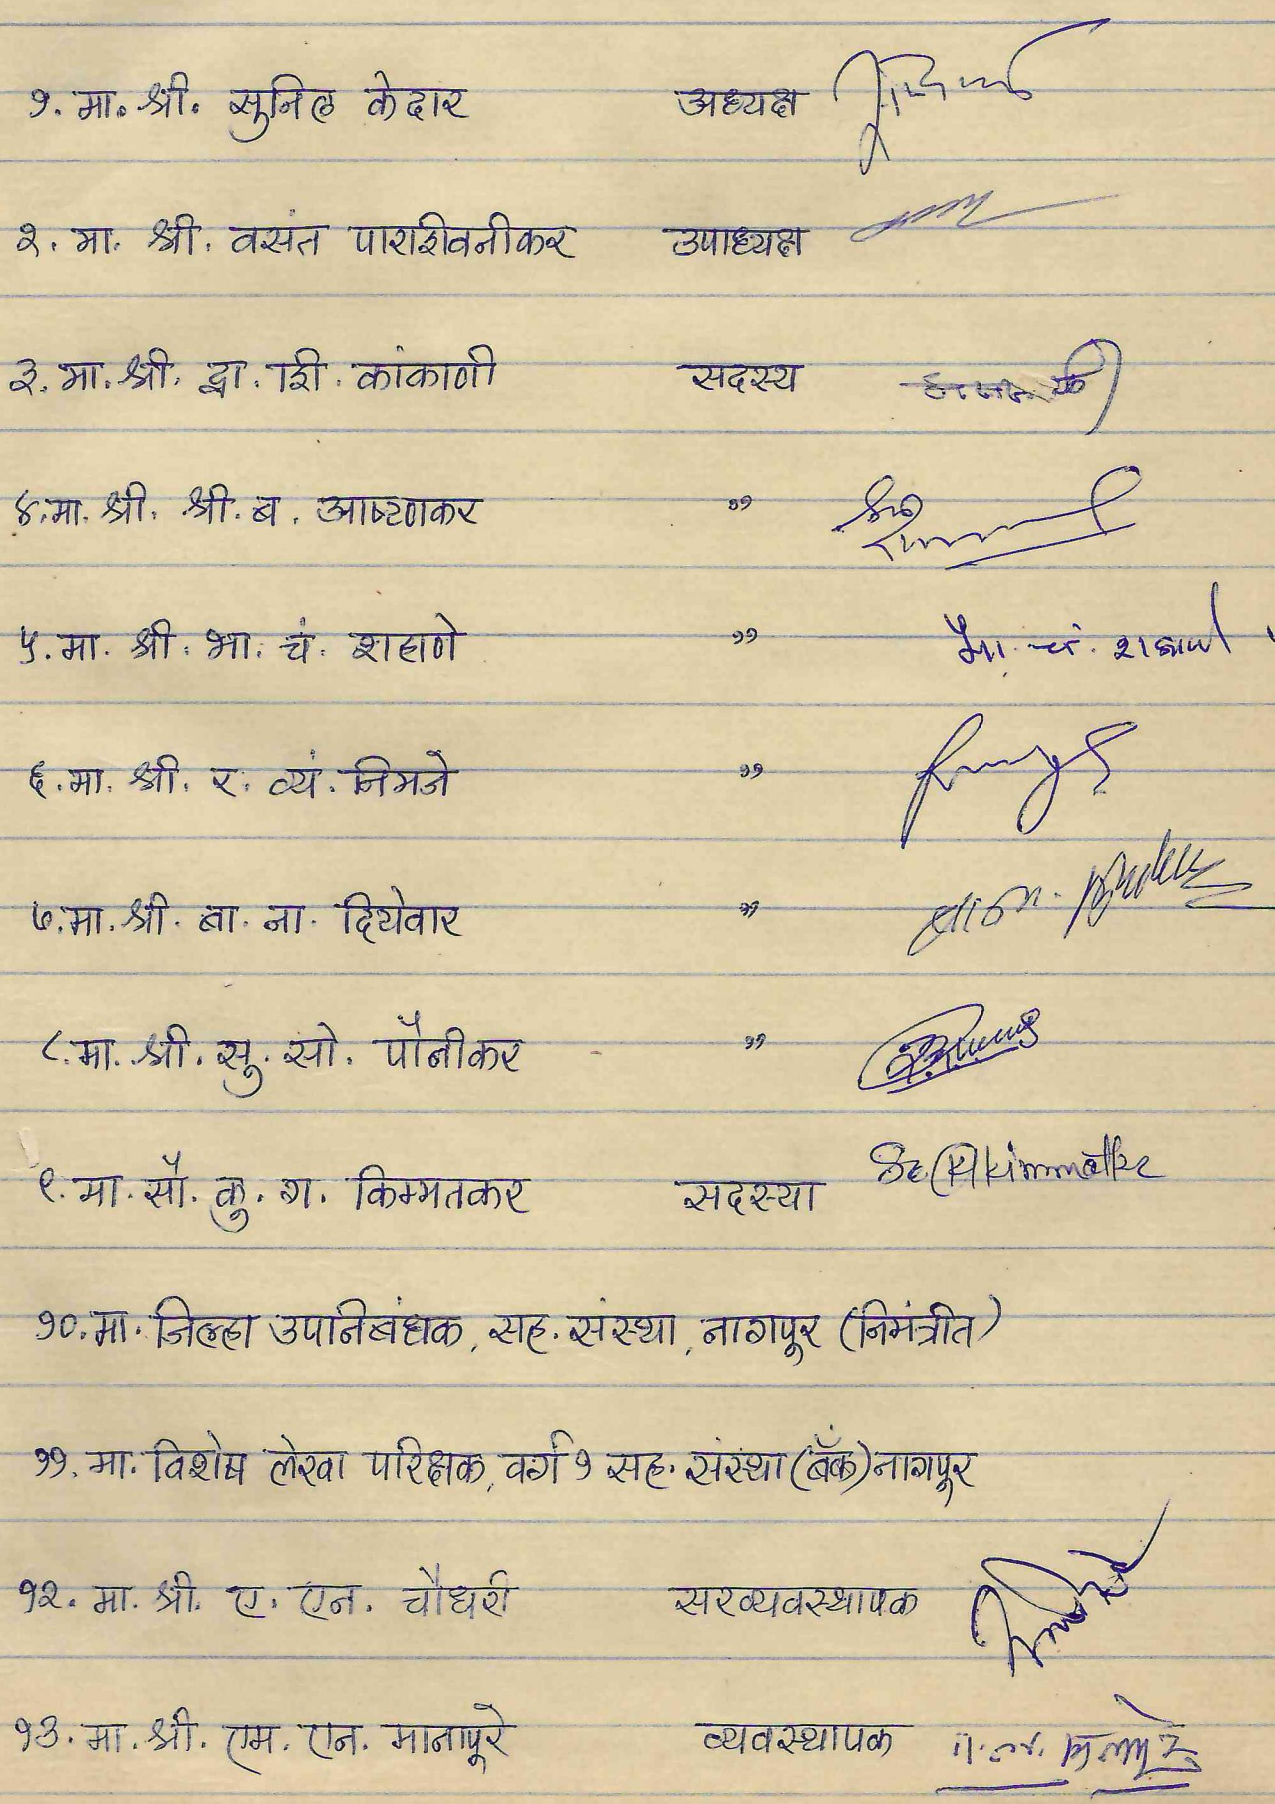 १. मा. श्री. सुनिल केदार अध्यक्ष
२. मा. श्री. वसंत पाराशीवनीकर उपाध्यक्ष
३. मा. श्री. द्वा. शि. कांकाणी सदस्य
४. मा. श्री. श्री. ब. आष्टणकर "
५. मा. श्री. भा. चं. शहाणे " भा. चं. शहाणे
६. मा. श्री. र. व्यं. निमजे "
७. मा. श्री. बा. ना. दियेवार "
८. मा. श्री. सु. सो. पौनीकर "
९. मा. सौ. कु. ग. किम्मतकर सदस्या
१०. मा. जिल्हा उपनिबंधक, सह. संस्था, नागपूर (निमंत्रीत)
११. मा. विशेष लेखा परिक्षक, वर्ग १ सह. संस्था (बँक) नागपूर
१२. मा. श्री. ए. एन. चौधरी सरव्यवस्थापक
१३. मा. श्री. एम. एन. मानापूरे व्यवस्थापक